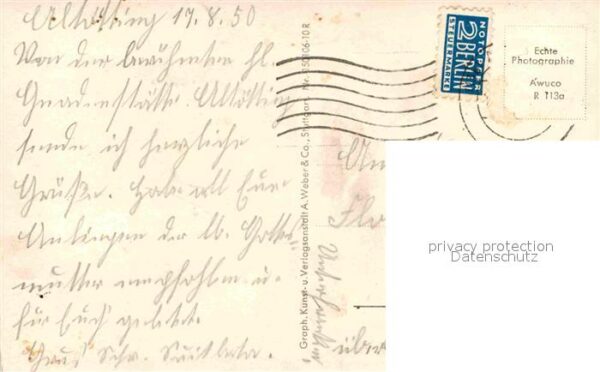 Altötting 17.8.50
Von der berühmten hl.
Gnadenstätte Altötting
sende ich herzliche
Grüße. Hab all Eure
Anliegen der lb. Gottes-
mutter empfohlen u.
für Euch gebetet.
Gruß Schw.
Graph. Kunst- u. Verlagsanstalt A. Weber & Co., Stuttgart
NOTOPFER
2 BERLIN
STEUERMARKE
Echte
Photographie
Awuco
R 113a
An
über
privacy protection
Datenschutz